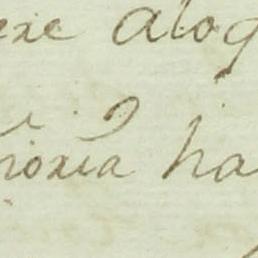 exe alog
noxia ha